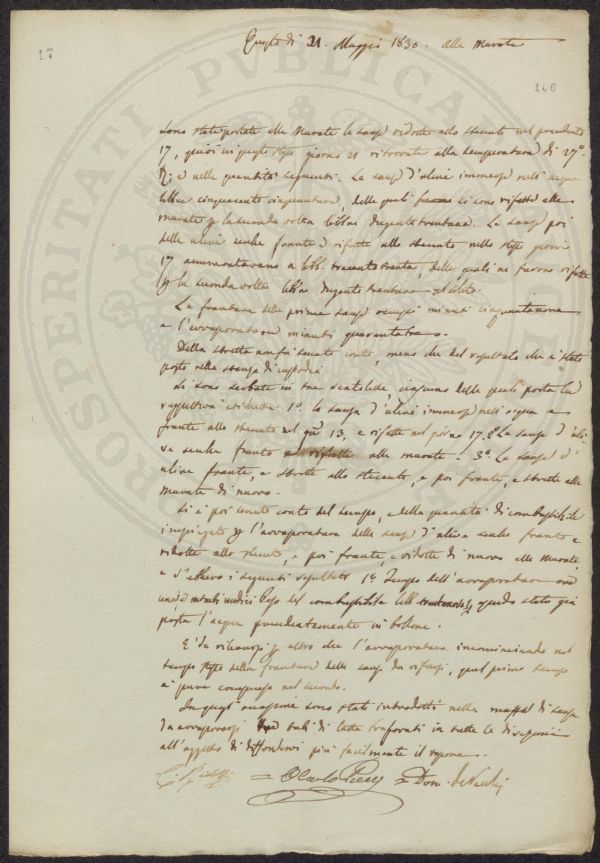 Questo dì 21. Maggio 1830. alle Murate
166
Sono state portate alle Murate le sanse ridotte allo stecuto nel precedente
17, quivi in questo stesso giorno 21 ritrovate alla temperatura di 27°.
R; e nelle quantità seguenti. Le sanse d'olive immerse nell'acqua
libbre cinquecento cinquantuna, delle quali si sono rifatte alle
murate p la seconda volta libbre dugento trentuna. Le sanse poi
delle ulive secche frante e rifatte allo stecuto nello stesso giorno
17 ammontavano a libb. trecento trenta, delle quali ne furono rifatte
p la seconda volta libbre dugento trentuna
La frantura delle prime sanse occupò minuti cinquantanove
e l'avvaporatura minuti quarantatre.
Della stretta non fu tenuto conto, meno che del resultato che è stato
posto nella stanza di custodia
Si sono serbate in tre scatolette, ciascuna delle quali porta la
respettiva etichetta 1°. la sansa d'ulive immerse nell'acqua e
frante allo stecuto nel 13. e rifatte nel giorno 17. 2° La sansa d'uli-
va secche frante e rifatte alle murate. 3°. Le sanse d'
ulive frante, e strette allo stecuto, e poi frante, e strette alle
Murate di nuovo.
Si è poi tenuto conto del tempo, e della quantità di combustibile
impiegato p l'avvaporatura delle sanse d'ulive secche frante e
ridotte allo stecuto, e poi frante, e ridotte di nuovo alle Murate
e s'ebbero i seguenti resultati 1° Tempo dell'avvaporatura ore
una, e minuti undici Peso del combustibile libb. essendo stata già
posta l'acqua precedentemente in bollore.
E' da rilevarsi p altro che l'avvaporatura incominciando nel
tempo stesso della frantura delle sanse da rifarsi, quel primo tempo
è pure compreso nel secondo.
In quest'occasione sono stati introdotti nella massa di sansa
da avvaporarsi tubi di latta traforati in tutte le direzioni
all'oggetto di diffondervi più facilmente il vapore.
= Carlo = Dom.
PROSPERITATI PUBLICAE